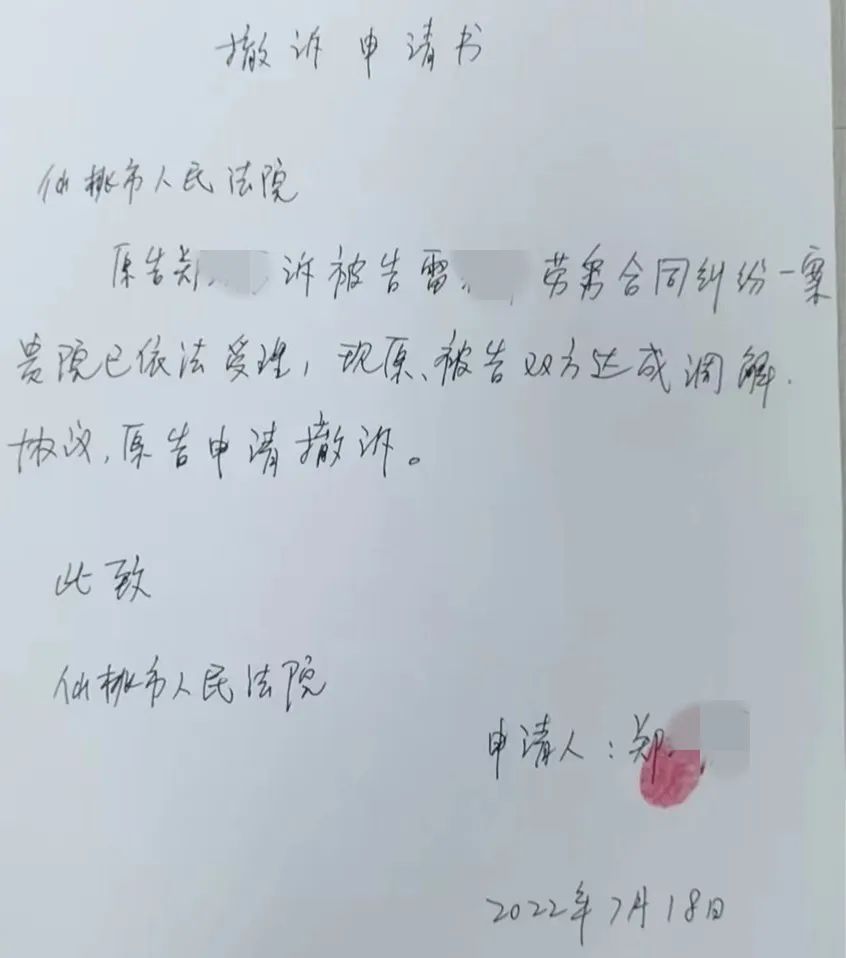 撤诉申请书
仙桃市人民法院
原告郑 诉被告雷 劳务合同纠纷一案
贵院已依法受理，现原、被告双方达成调解.
协议，原告申请撤诉。
此致
仙桃市人民法院
申请人：郑
2022年7月18日